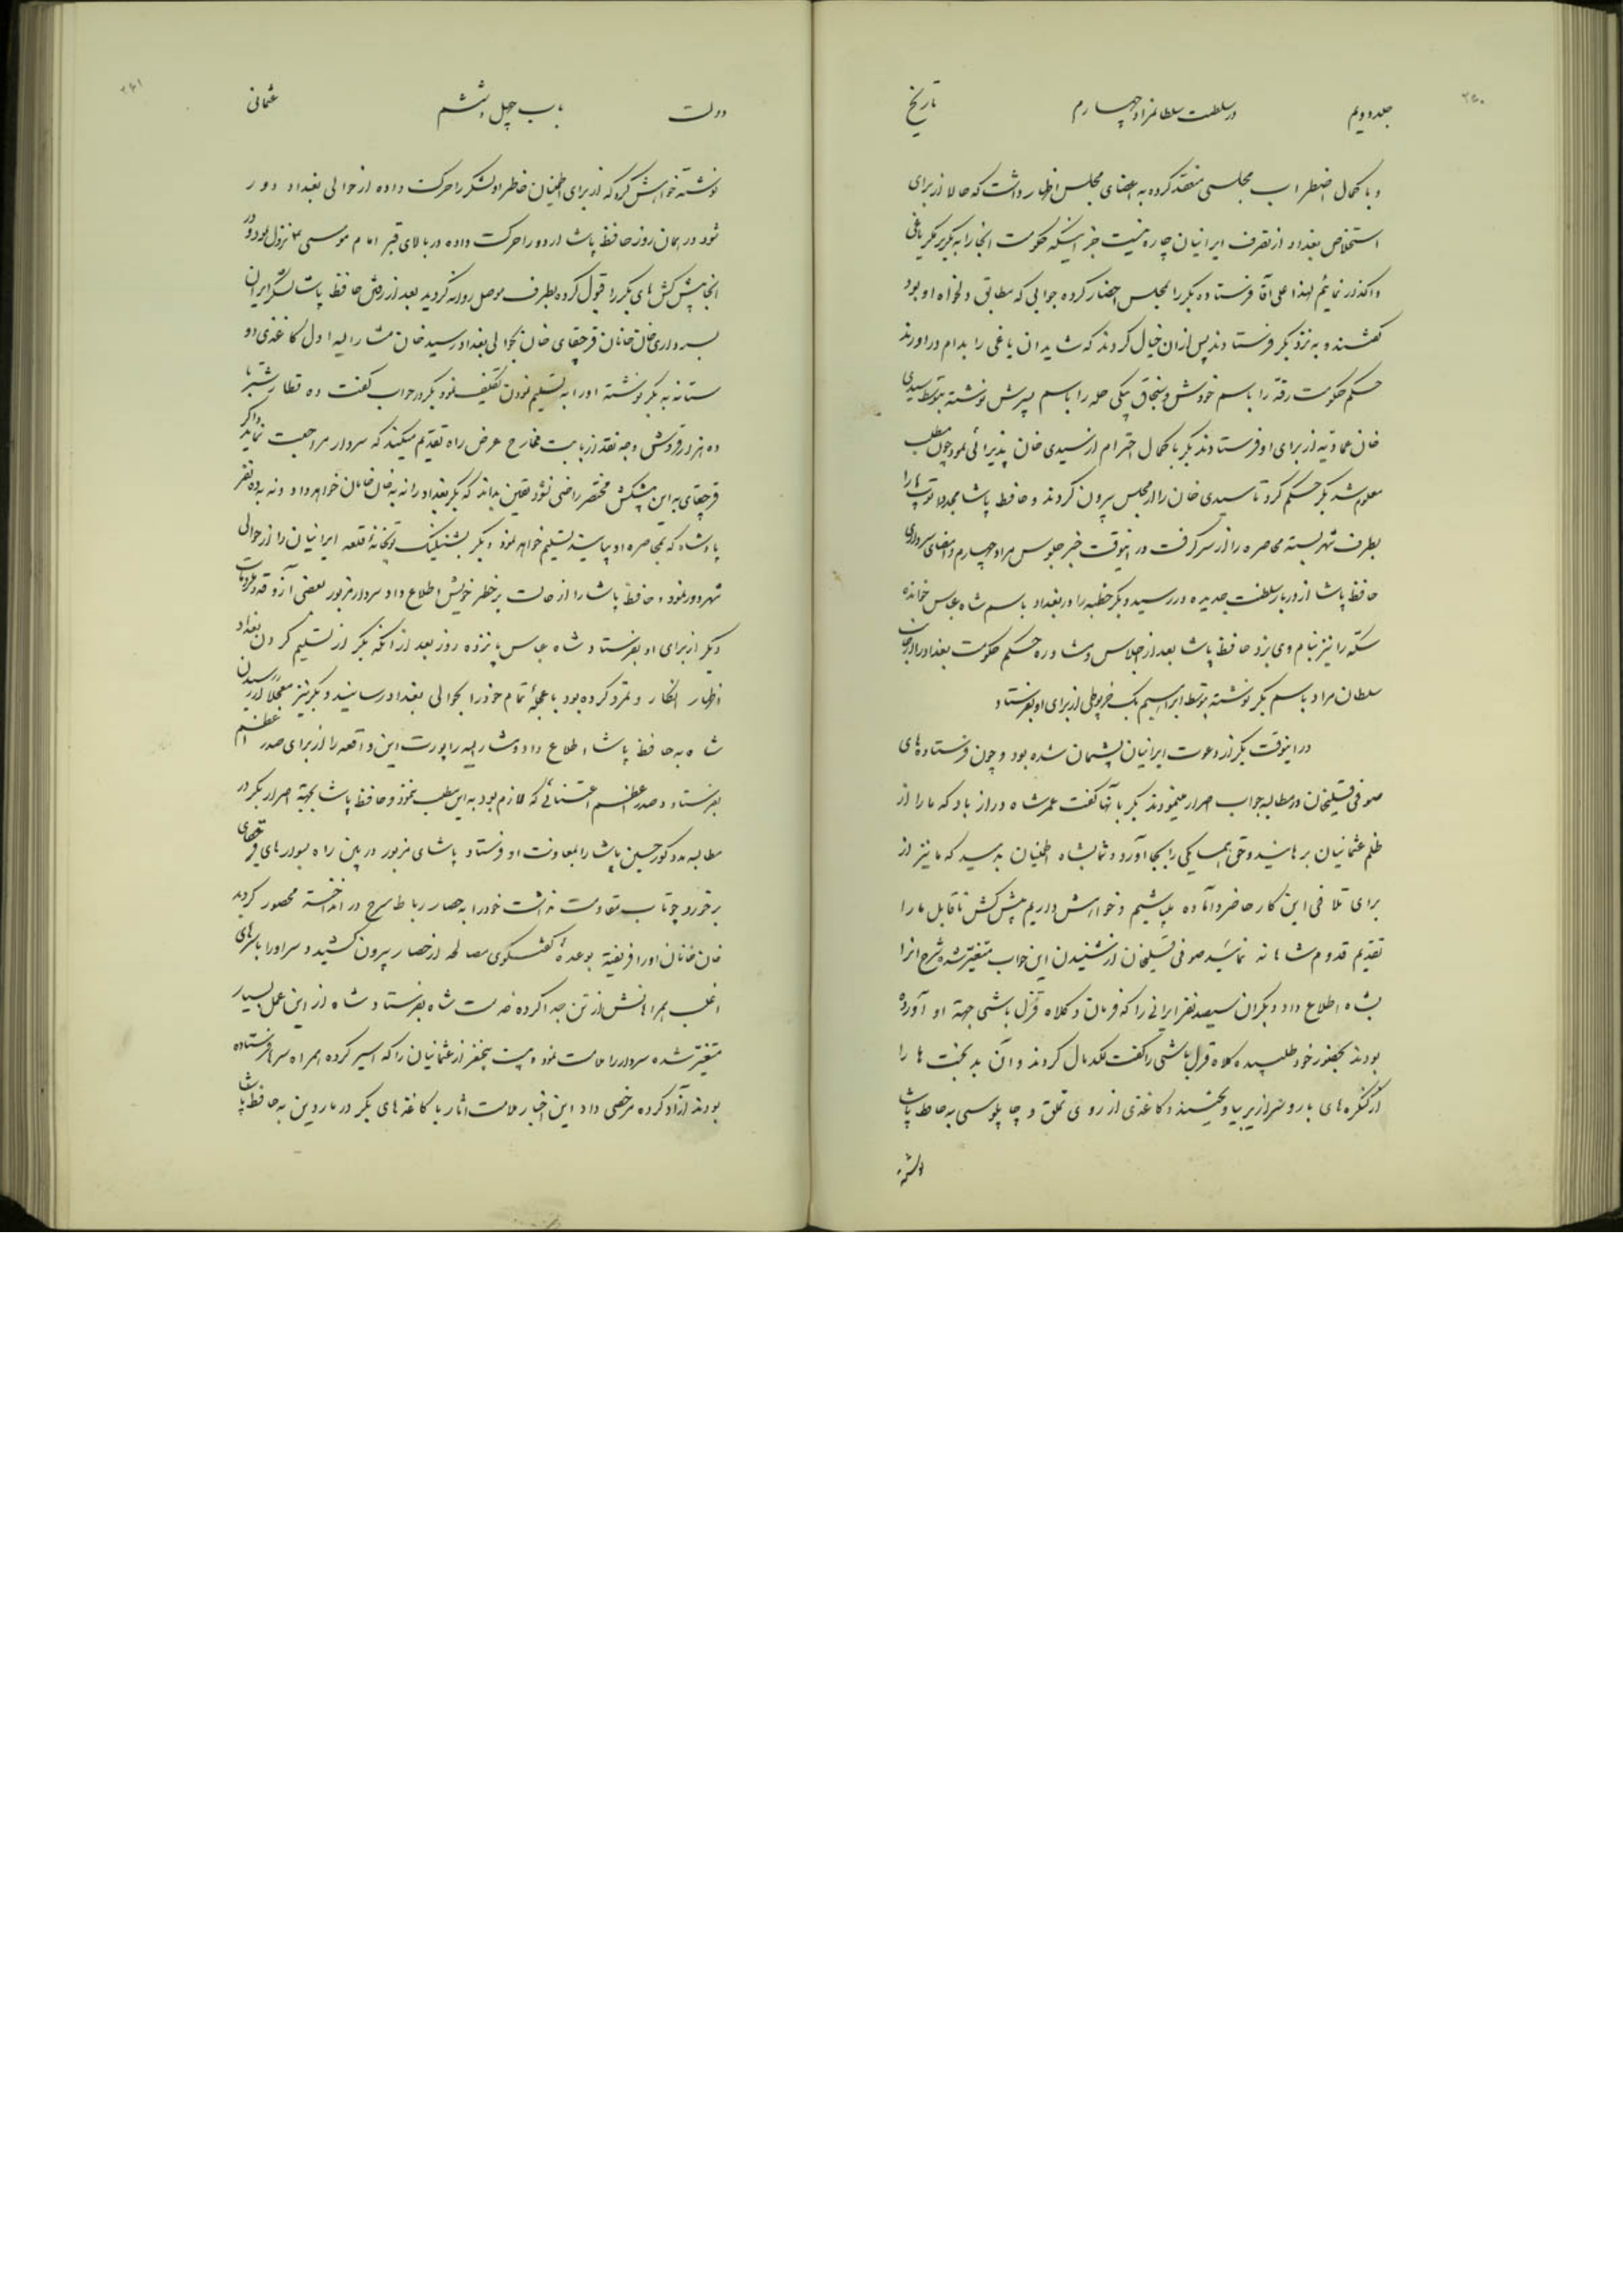 ۲۶۰
جلد دویم در سلطنت سلطانمراد چهارم تاریخ
و با کمال اضطراب مجلسی منعقد کرده به اعضای مجلس اظهار داشت که حالا از برای
استخلاص بغداد از تصرف ایرانیان چاره نیست جز اینکه حکومت انجا را به بکر یاغی
واگذار نمائیم لهذا علی آقا فرستاده بکر را بمجلس احضار کرده جوابی که مطابق دلخواه او بود
گفتند و به نزد بکر فرستادند پس ازان خیال کردند که شاید ان یاغی را بدام دراورند
حکم حکومت رقه را باسم خودش و سنجاق بیکی حله را باسم پسرش نوشته بتوسط سیدی
خان عمادیه از برای او فرستادند بکر با کمال احترام از سیدی خان پذیرائی نمود چون مطلب
معلوم شد بکر حکم کرد تا سیدی خان را از مجلس بیرون کردند و حافظ پاشا مجددا توپها را
بطرف شهر بسته محاصره را از سر گرفت در اینوقت خبر جلوس مراد چهارم و امضای سرداری
حافظ پاشا از دربار سلطنت جدیده در رسید و بکر خطبه را در بغداد باسم شاه عباس خوانده
سکه را نیز بنام وی بزد حافظ پاشا بعد از اجلاس و مشاوره حکم حکومت بغداد را از جانب
سلطان مراد باسم بکر نوشته بتوسط ابراهیم بک خرپوطی از برای او بفرستاد
در اینوقت بکر از دعوت ایرانیان پشیمان شده بود و چون فرستاده های
صوفی قلیخان در مطالبه جواب اصرار مینمودند بکر بآنها گفت عمر شاه دراز باد که ما را از
ظلم عثمانیان برهانید و حق همسایکی را بجا آورد و شما بشاه اطمینان بدهید که ما نیز از
برای تلافی این کار حاضر و آماده میباشیم و خواهش داریم پیش کش ناقابل ما را
تقدیم قدوم شاهانه نمائید صوفی قلیخان از شنیدن این جواب متغیر شده شرح انرا
بشاه اطلاع داد و بکر ان سیصد نفر ایرانی را که فرمان و کلاه قزل باشی جهة او آورده
بودند بحضور خود طلبیده کلاه قزل باشی را گفت لگدمال کردند و آن بدبخت ها را
از کنگره های بارو سرازیر بیاویختند و کاغذی از روی تملق و چاپلوسی به حافظ پاشا
نوشته
۲۶۱
دولت باب چهل و ششم عثمانی
نوشته خواهش کرد که از برای اطمینان خاطر او لشکر را حرکت داده از حوالی بغداد دور
شود در همان روز حافظ پاشا اردو را حرکت داده در بالای قبر امام موسی ع نزول نمود و در
انجا پیش کش های بکر را قبول کرده بطرف موصل روانه گردید بعد از رفتن حافظ پاشا لشگر ایران
بسرداری خان خانان قرچقای خان بحوالی بغداد رسید خان مشار الیه اول کاغذی دو
ستانه به بکر نوشته او را به تسلیم نمودن تکلیف نمود بکر در جواب گفت ده قطار شتر با
ده هزار قروش وجه نقد از بابت مخارج عرض راه تقدیم میکند که سردار مراجعت نماید و اگر
قرچقای به این پیشکش مختصر راضی نشود یقین بداند که بکر بغداد را نه به خان خانان خواهد داد و نه به ده نفر
پادشاه که بمحاصره او بیایند تسلیم خواهد نمود و بکر بشنیلیک توپخانه قلعه ایرانیان را از حوالی
شهر دور نمود و حافظ پاشا را از حالت پر خطر خویش اطلاع داد سردار مزبور بعضی آزوقه و ملزومات
دیگر از برای او بفرستاد شاه عباس پانزده روز بعد از آنکه بکر از تسلیم کردن بغداد
اظهار انکار و تمرد کرده بود با عجله تمام خود را بحوالی بغداد رسانید و بکر نیز معجلا از رسیدن
شاه به حافظ پاشا اطلاع داد و مشار الیه راپورت این واقعه را از برای صدر اعظم
بفرستاد و صدر اعظم اعتنائی که لازم بود به این مطلب ننمود و حافظ پاشا بجهة اصرار بکر در
مطالبه مدد کور حسین پاشا را بمعاونت او فرستاد پاشای مزبور در بین راه بسوارهای قرچقای
برخورد چون تاب مقاومت نداشت خود را به حصار رباط سرخ در انداخته محصور گردید
خان خانان او را فریفته بوعده گفتگوی مصالحه از حصار بیرون کشید و سر او را با سرهای
اغلب همراهانش از تن جدا کرده خدمت شاه بفرستاد شاه از این عمل بسیار
متغیر شده سردار را ملامت نمود و بیست پنجنفر از عثمانیان را که اسیر کرده همراه سرها فرستاده
بودند آزاد کرده مرخصی داد این اخبار ملامت اثار با کاغذهای بکر در ماردین به حافظ پاشا